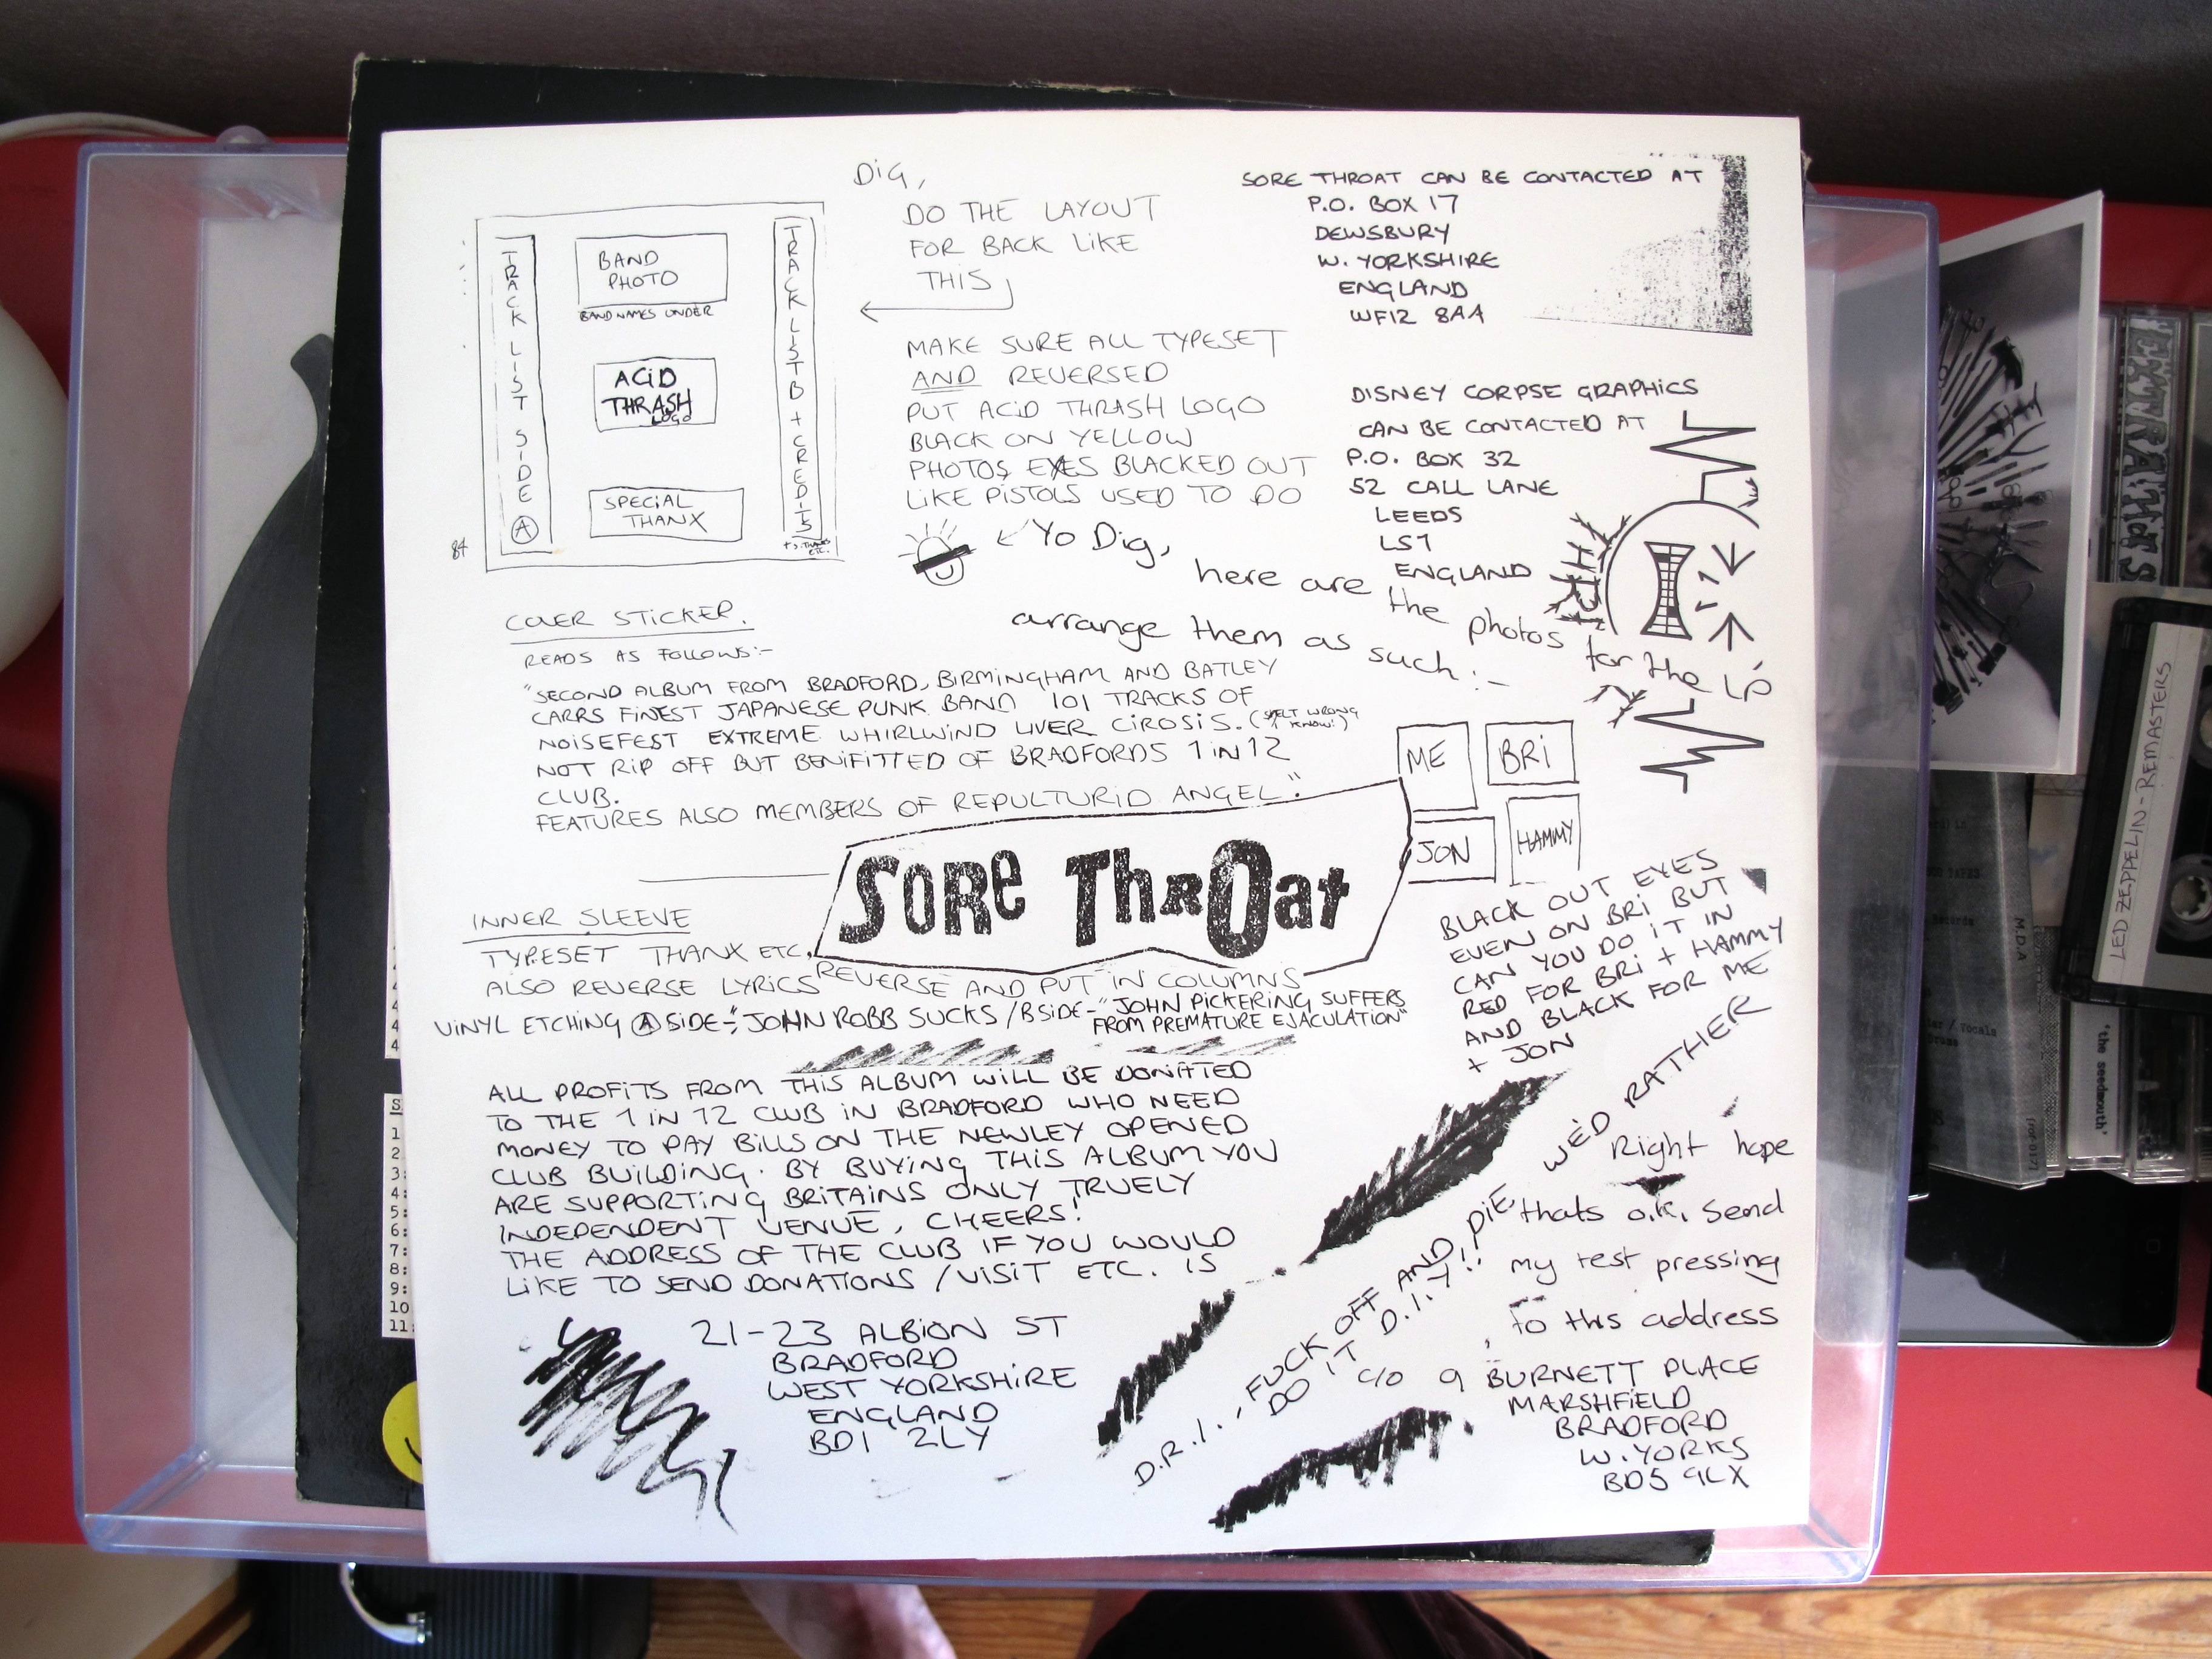 Dig,
DO THE LAYOUT
FOR BACK LIKE
THIS
TRACK LIST SIDE A
BAND
PHOTO
BAND NAMES UNDER
ACID
THRASH
LOGO
SPECIAL
THANX
TRACK LIST B + CREDITS
+ S. THANKS
ETC.
84
MAKE SURE ALL TYPESET
AND REVERSED
PUT ACID THRASH LOGO
BLACK ON YELLOW
PHOTOS EYES BLACKED OUT
LIKE PISTOLS USED TO DO
SORE THROAT CAN BE CONTACTED AT
P.O. BOX 17
DEWSBURY
W. YORKSHIRE
ENGLAND
WF12 8AA
DISNEY CORPSE GRAPHICS
CAN BE CONTACTED AT
P.O. BOX 32
52 CALL LANE
LEEDS
LS1
ENGLAND
Yo Dig,
here are the photos for the LP
arrange them as such :-
ME
BRI
JON
HAMMY
COVER STICKER.
READS AS FOLLOWS:-
"SECOND ALBUM FROM BRADFORD, BIRMINGHAM AND BATLEY
CARRS FINEST JAPANESE PUNK BAND 101 TRACKS OF
NOISEFEST EXTREME WHIRLWIND LIVER CIROSIS. (SPELT WRONG
I KNOW!)
NOT RIP OFF BUT BENIFITTED OF BRADFORDS 1 IN 12
CLUB.
FEATURES ALSO MEMBERS OF REPULTURID ANGEL."
SORE THROAT
BLACK OUT EYES
EVEN ON BRI BUT
CAN YOU DO IT IN
RED FOR BRI + HAMMY
AND BLACK FOR ME
+ JON
INNER SLEEVE
TYPESET THANX ETC,
ALSO REVERSE LYRICS REVERSE AND PUT IN COLUMNS
VINYL ETCHING A SIDE-"JOHN ROBB SUCKS / B SIDE-"JOHN PICKERING SUFFERS
FROM PREMATURE EJACULATION"
ALL PROFITS FROM THIS ALBUM WILL BE DONATTED
TO THE 1 IN 12 CLUB IN BRADFORD WHO NEED
MONEY TO PAY BILLS ON THE NEWLEY OPENED
CLUB BUILDING. BY BUYING THIS ALBUM YOU
ARE SUPPORTING BRITAINS ONLY TRUELY
INDEPENDENT VENUE, CHEERS!
THE ADDRESS OF THE CLUB IF YOU WOULD
LIKE TO SEND DONATIONS / VISIT ETC. IS
21-23 ALBION ST
BRADFORD
WEST YORKSHIRE
ENGLAND
BD1 2LY
D.R.I., FUCK OFF AND DIE WE'D RATHER
DO IT D.I.Y!!
Right hope
thats o.k. Send
my test pressing
to this address
c/o 9 BURNETT PLACE
MARSHFIELD
BRADFORD
W. YORKS
BD5 9LX
4
4
4
S
1
2
3:
4:
5:
6:
7:
8:
9:
10
11:
LED ZEPPELIN - REMASTERS
'the seedmouth'
M.D.A